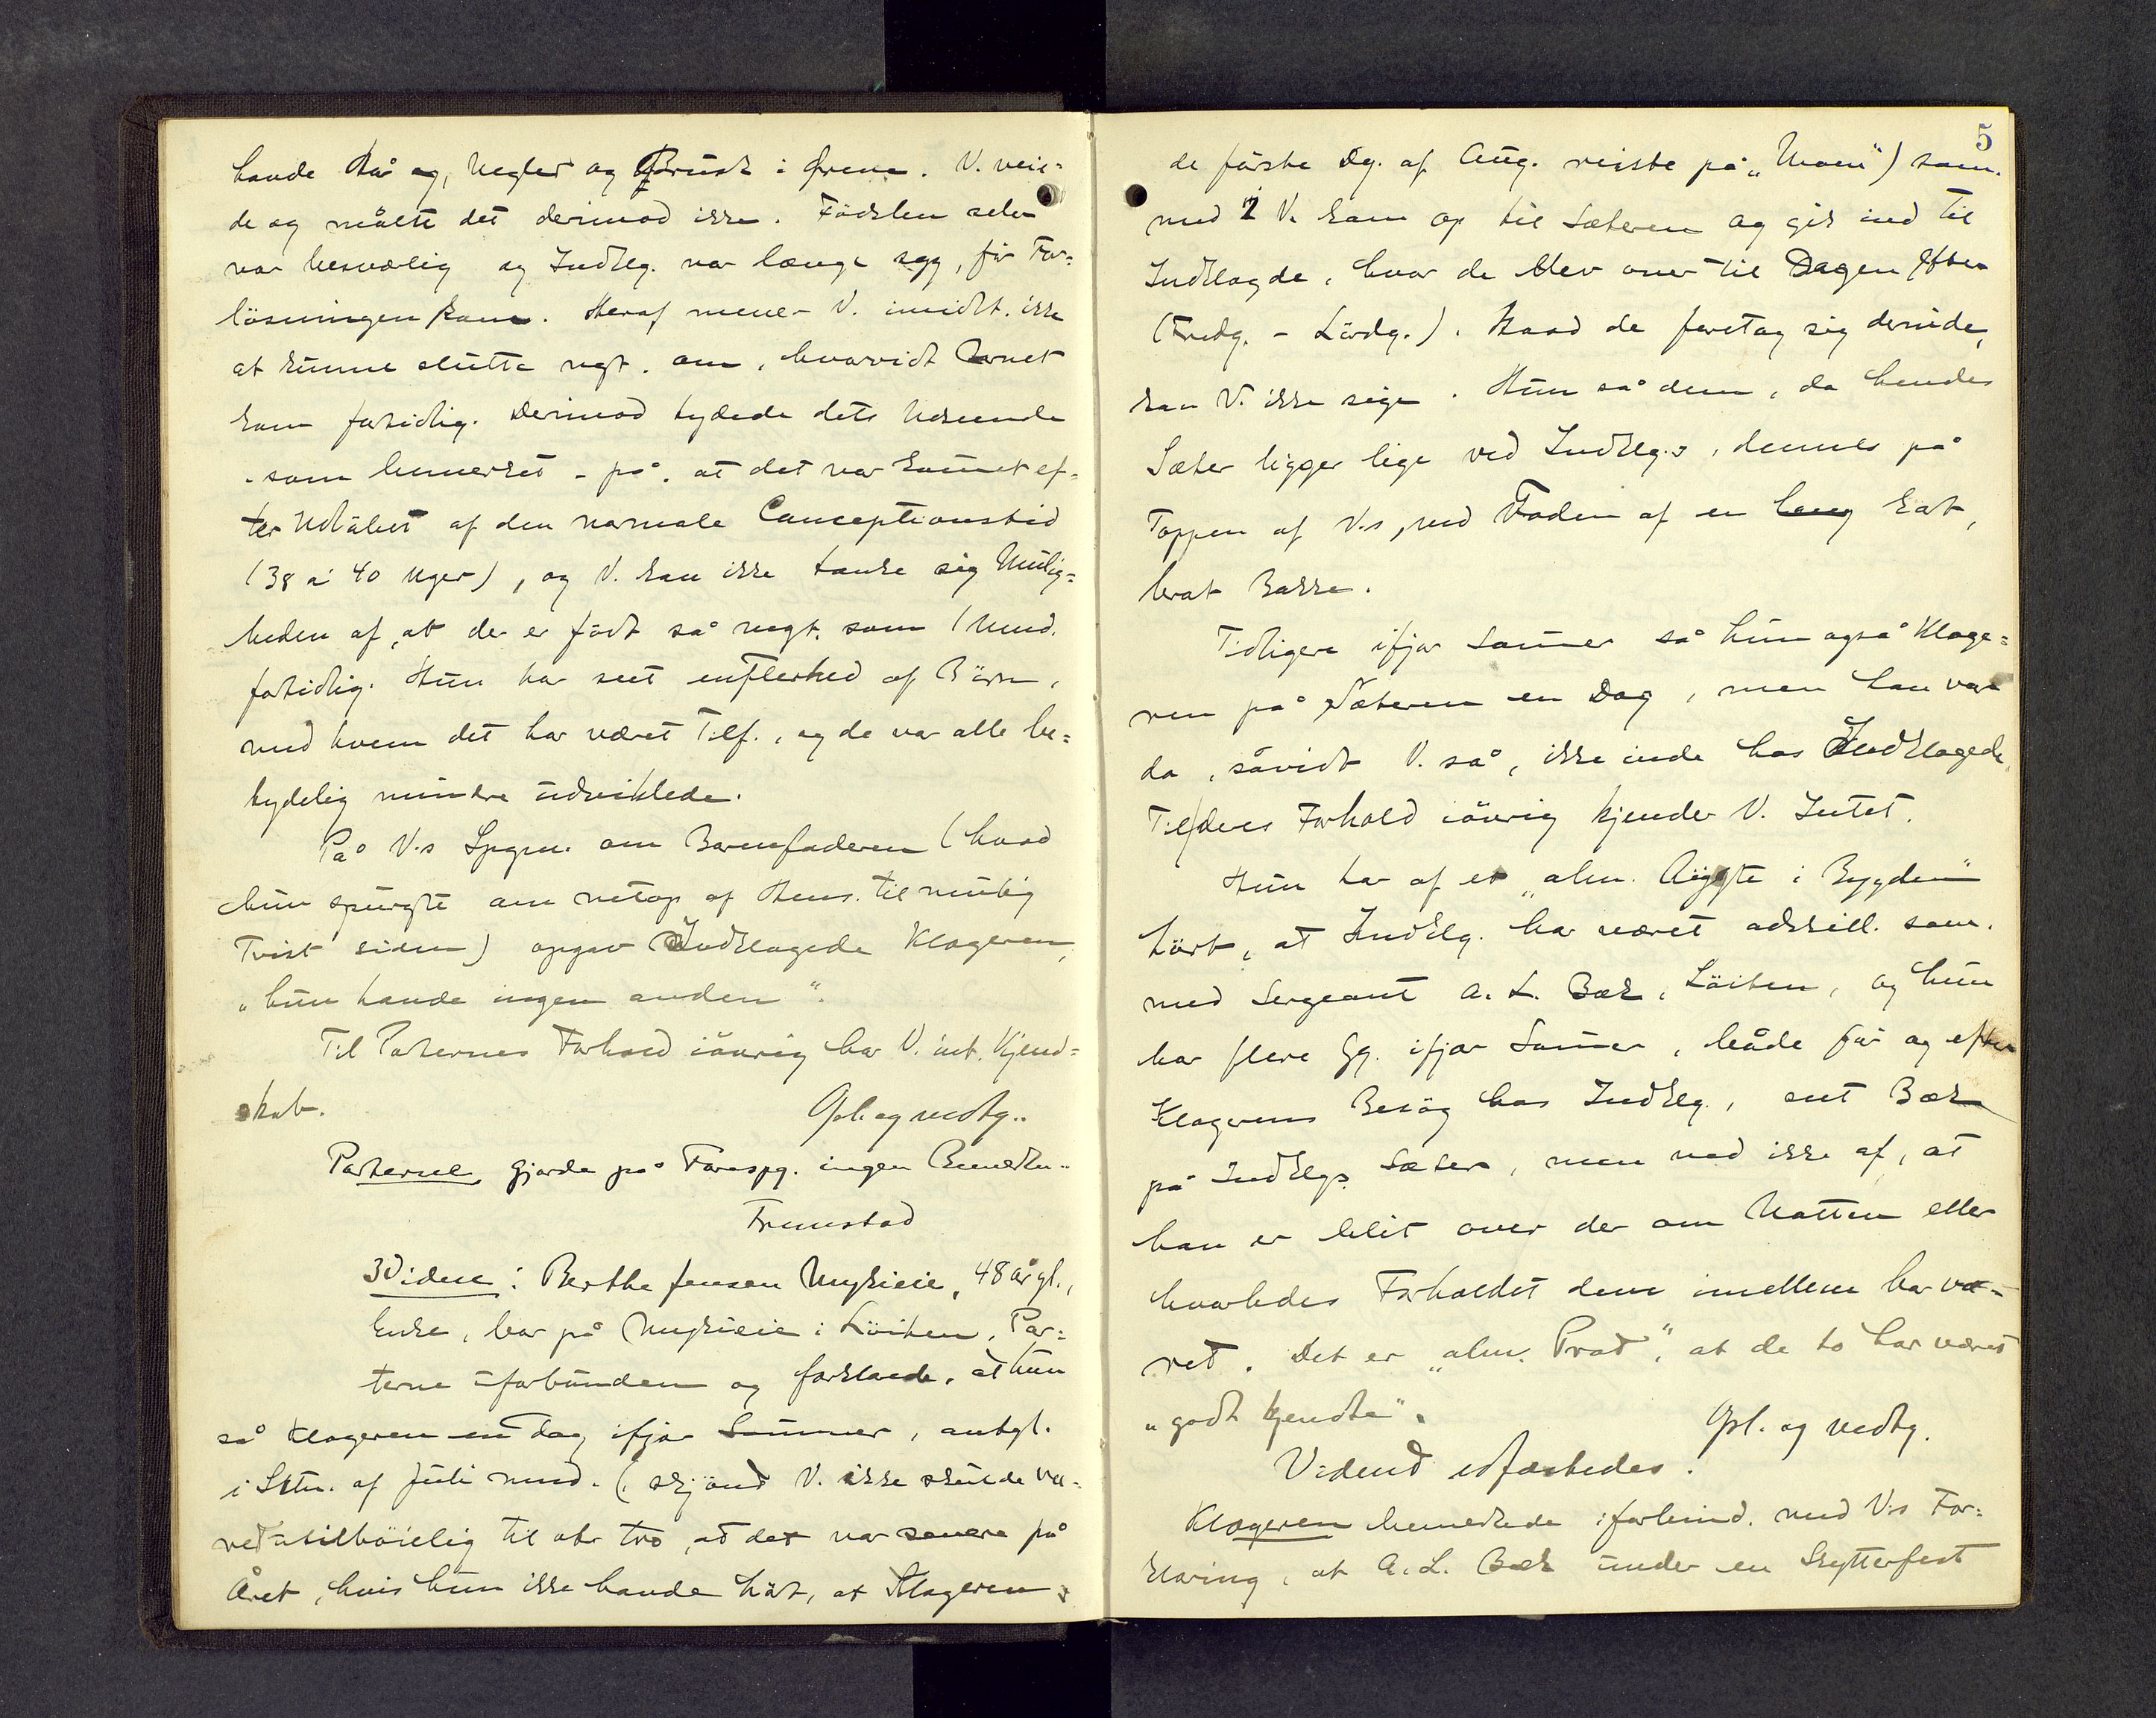 havde Hår og, Negler og Brusk i Ørene. V. veie=
de og målte det derimod ikke. Födslen selv
var besværlig og Indklg. var længe syg, för For=
lösningen kom. Heraf mener V. imidlt. ikke
at kunne slutte ngt. om, hvorvidt Barnet
kom fortidlig. Derimod tydede dets Udseende
- som bemerket - på, at det var kommet ef=
ter Udløbet af den normale Conceptionstid
(38 à 40 Uger), og V. kan ikke tænke sig Mulig=
heden af, at der er födt så megt. som 1 Mnd.
fortidlig. Hun har seet en Flerhed af Börn,
med hvem det har været Tilf., og de var alle be=
tydelig mindre udviklede.
På V.s Spgsm. om Barnefaderen (hvad
hun spurgte om netop af Hens. til mulig
Tvist siden) opgav Indklagede Klageren,
"hun havde ingen anden".
Til Parternes Forhold iövrig har V. int. Kjend=
skab.
Opl. og vedtg..
Parterne gjorde på Forespg. ingen Bemerkn..
Fremstod
3 Vidne: Berthe Jensen Myhreie, 48 år gl.,
Enke, bor på Myhreie i Löiten, Par=
terne uforbunden og forklarede, at hun
så Klageren en Dag ifjor Sommer, antgl.
i Sltn. af Juli Mnd. (skjönt V. ikke skulde væ=
ret utilböielig til at tro, at det var senere på
Året, hvis hun ikke havde hört, at Klageren
5
de förste Dg. af Aug. reiste på "Moen") sam.
med 1 V. kom op til Sæteren og gik ind til
Indklagde, hvor de blev over til Dagen efter
(Fredg. - Lördg.). Hvad de foretog sig derinde,
kan V. ikke sige. Hun så dem, da hendes
Sæter ligger lige ved Indklg.s, dennes på
Toppen af V.s, ved Foden af en lang kort,
brat Bakke.
Tidligere ifjor Sommer så hun også Klage=
ren på Sæteren en Dag, men han var
da, såvidt V. så, ikke inde hos Indklagede.
Til deres Forhold iövrig kjender V. Intet.
Hun har af et "alm. Rygte i Bygden"
hört, at Indklg. har været adskill. sam.
med Sergeant A. L. Bæk, Löiten, og hun
har flere Gg. ifjor Sommer, både för og efter
Klagerens Besög hos Indklg., set Bæk
på Indklgs Sæter, men ved ikke af, at
han er blit over der om Natten eller
hvorledes Forholdet dem imellem har væ=
ret. Det er "alm. Prat", at de to har været
"godt kjendte".
Opl. og vedtg.
Vidnet edfæstedes.
Klageren bemerkede i forbind. med V.s For=
klaring, at A. L. Bæk under en Skytterfest